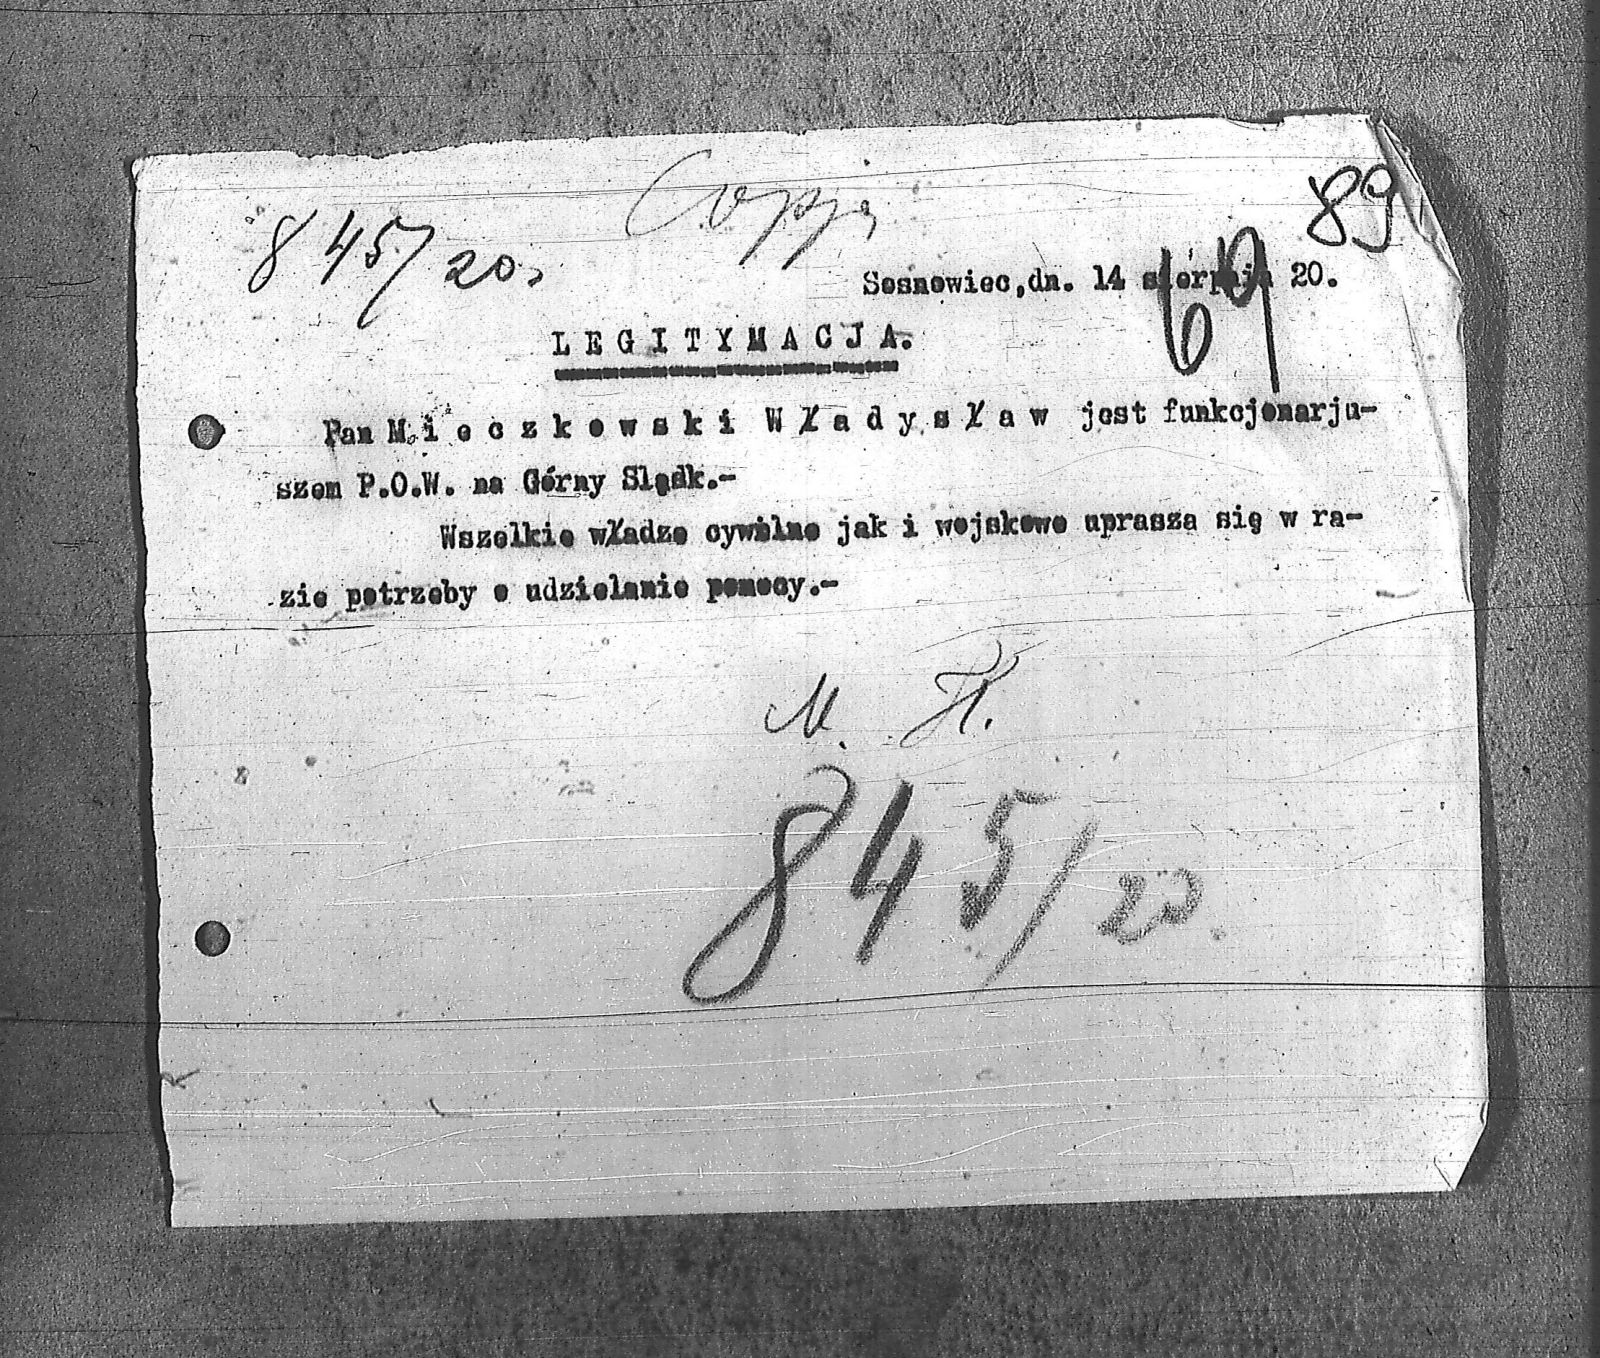 Copja
89
845/20.
69
Sosnowiec,dn. 14 sierpnia 20.
LEGITYMACJA.
Pan Mieczkowski Władysław jest funkcjonarju-
szem P.O.W. na Górny Sląsk.-
Wszelkie władze cywilne jak i wojskowe uprasza się w ra-
zie potrzeby o udzielanie pomocy.-
845/20.